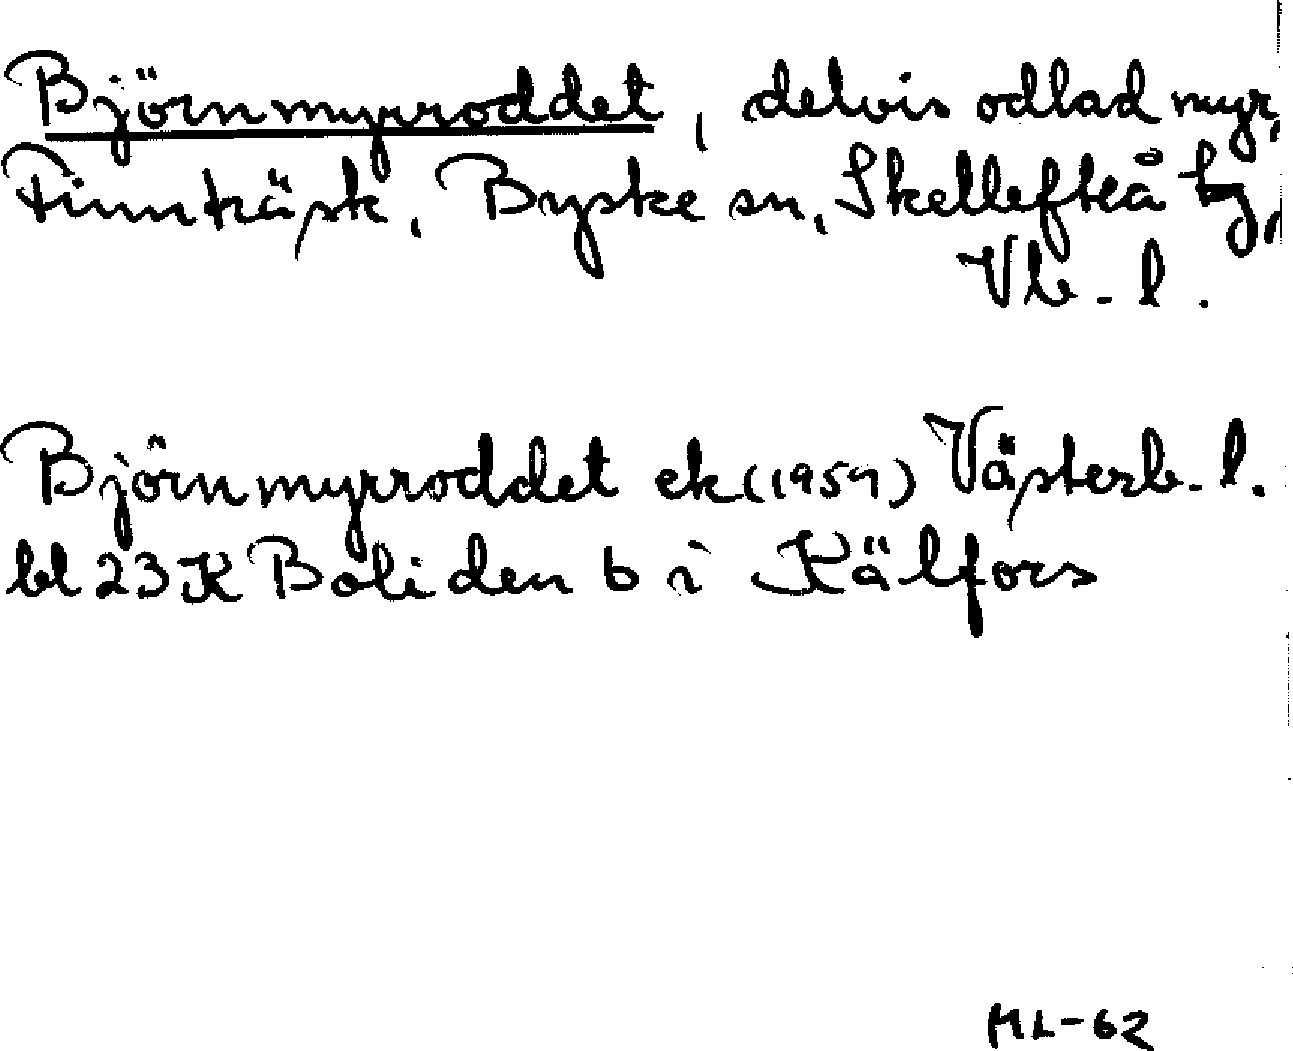 Björnmyrroddet, delvis odlad myr,
Finnträsk, Byske sn, Skellefteå tg,
Vb-l.
Björnmyrroddet ek (1959) Västerb-l.
bl 23 K Boliden b i Kälfors
ML-62